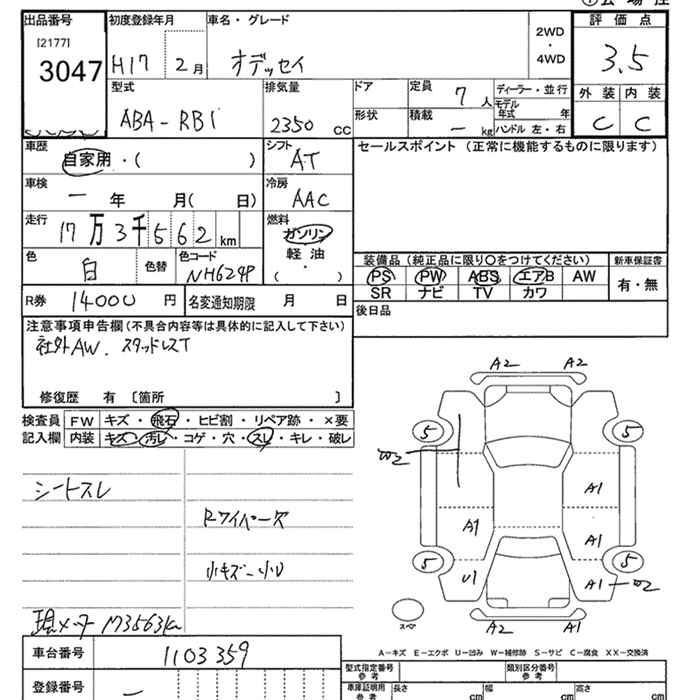 出品番号 初度登録年月 車名・グレード 評価点
[2177]
3047 H17 2月 オデッセイ 2WD・4WD 3.5
型式 排気量 ドア 定員 7人 ディーラー・並行 外装 内装
ABA-RB1 2350cc 形状 積載 ー kg モデル年式 年 C C
ハンドル 左・右
車歴 自家用・( ) シフト AT セールスポイント(正常に機能するものに限ります)
車検 ー 年 月( 日) 冷房 AAC
走行 17万3千562km 燃料 ガソリン
軽油
・( )
色 白 色替 色コード NH624P
装備品(純正品に限り○をつけてください) 新車保証書
PS PW ABS エアB AW 有・無
SR ナビ TV カワ
R券 14000円 名変通知期限 月 日 後日品
注意事項申告欄(不具合内容等は具体的に記入して下さい)
社外AW. スタッドレスT
修復歴 有 〔箇所 〕
検査員 FW キズ・飛石・ヒビ割・リペア跡・×要
記入欄 内装 キズ・汚レ・コゲ・穴・スレ・キレ・破レ
A2 A2
5 5
W2
A1
A1 A1
5 5
U1 A1 W2
A2 A1
スペア
シートスレ
Rワイパー欠
小キズ-小U
現メーター 173563km
A-キズ E-エクボ U-凹み W-補修跡 S-サビ C-腐食 XX-交換済
車台番号 1103359
登録番号 ー
型式指定番号 参考 類別区分番号 参考
車庫証明用 参考 長さ cm 幅 cm 高さ cm